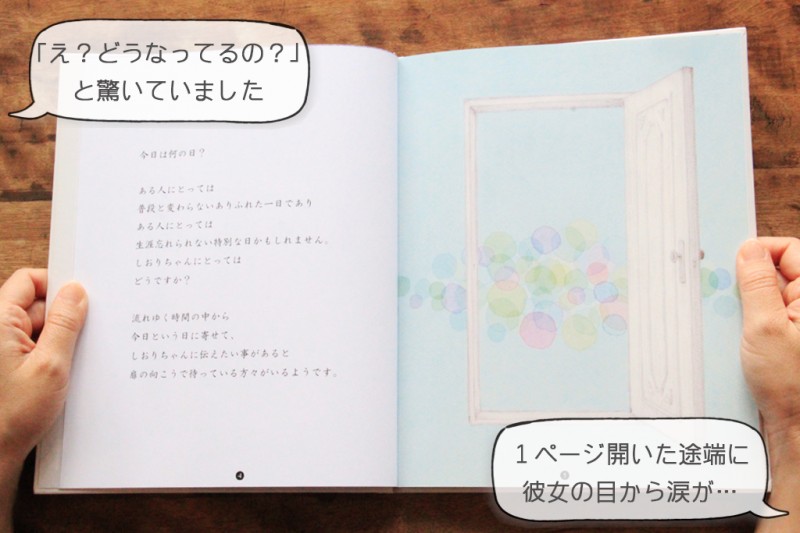 「え？どうなってるの？」
と驚いていました
今日は何の日？
ある人にとっては
普段と変わらないありふれた一日であり
ある人にとっては
生涯忘れられない特別な日かもしれません。
しおりちゃんにとっては
どうですか？
流れゆく時間の中から
今日という日に寄せて、
しおりちゃんに伝えたい事があると
扉の向こうで待っている方々がいるようです。
4
１ページ開いた途端に
彼女の目から涙が…